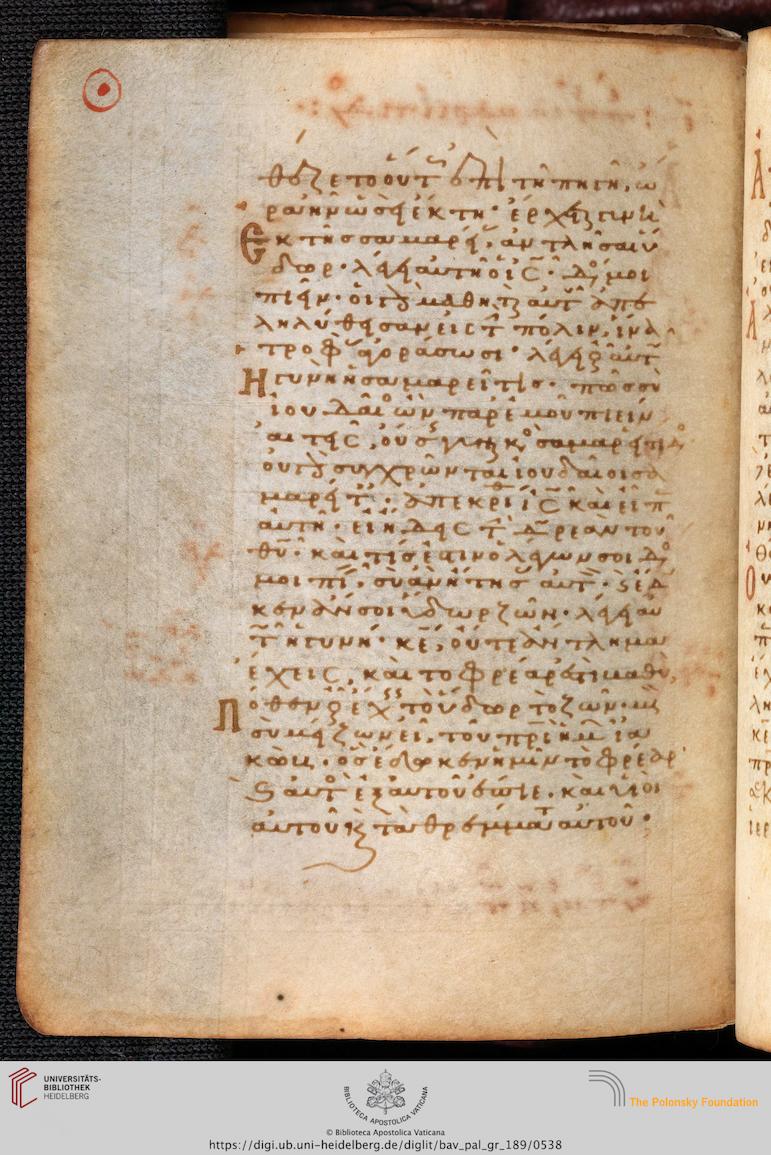 θέζετο οὕτ ἐπὶ τῆ πηγῆ, ὥ
ρα ἦν ὡσεὶ ἕκτη· ἔρχεται γυνὴ
Ἐκ τῆς σαμαρεί, ἀντλῆσαι ὕ
δωρ· λέγει αὐτῆ ὁ ἰς· δός μοι
πιεῖν· οἱ γὰρ μαθηταὶ αὐτ ἀπε
ληλύθεισαν εἰς τ πόλιν, ἵνα
τροφ ἀγοράσωσι· λέγει οὖν αὐτ
Ἡ γυνὴ ἡ σαμαρεῖτις· πῶς σὺ
ἰουδαῖ ὢν παρ' ἐμοῦ πιεῖν
αἰτεῖς, οὔσ γυναικ σαμαρείτιδ
οὐ γὰρ συγχρῶνται ἰουδαῖοι σα
μαρείτ· ἀπεκρί ἰς καὶ εἶπ
αὐτῆ· εἰ ἤδεις τ δωρεὰν τοῦ
θυ· καὶ τίς ἐστιν ὁ λέγων σοι δός
μοι πι, σὺ ἂν ἤτησ αὐτ· καὶ ἔδω
κεν ἄν σοι ὕδωρ ζῶν· λέγει αὐ
τ ἡ γυνή· κε, οὔτε ἄντλημα
ἔχεις, καὶ τὸ φρέαρ ἐστὶ βαθύ,
Πόθεν οὖν ἔχ τὸ ὕδωρ τὸ ζῶν· μὴ
σὺ μεί ζων εἶ, τοῦ πρς ἡμ ἰα
κώβ· ὃς ἔδωκεν ἡμῖν τὸ φρέαρ
καὶ αὐτ ἐξ αὐτοῦ ἔπιε· καὶ οἱ υἱοὶ
αὐτοῦ καὶ τὰ θρέμματ αὐτοῦ·
UNIVERSITÄTS-
BIBLIOTHEK
HEIDELBERG
BIBLIOTECA APOSTOLICA VATICANA
The Polonsky Foundation
© Biblioteca Apostolica Vaticana
https://digi.ub.uni-heidelberg.de/diglit/bav_pal_gr_189/0538